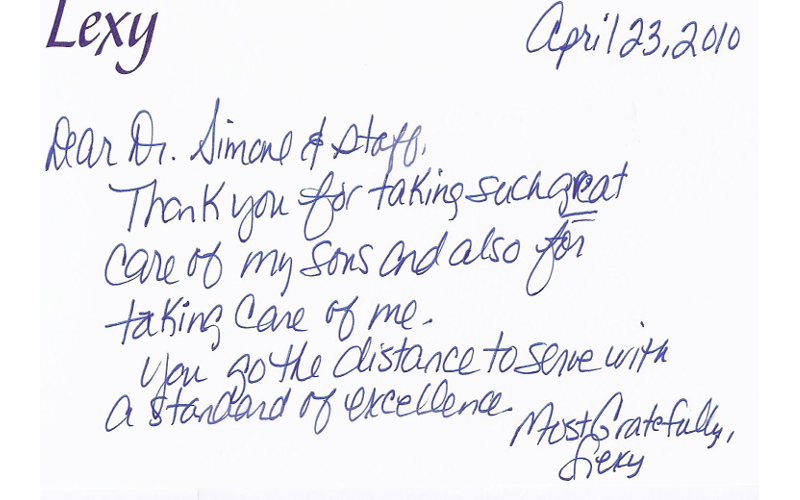 Lexy
April 23, 2010
Dear Dr. Simone & Staff,
Thank you for taking such great
care of my sons and also for
taking care of me.
You go the distance to serve with
a standard of excellence.
Most Gratefully,
Lexy